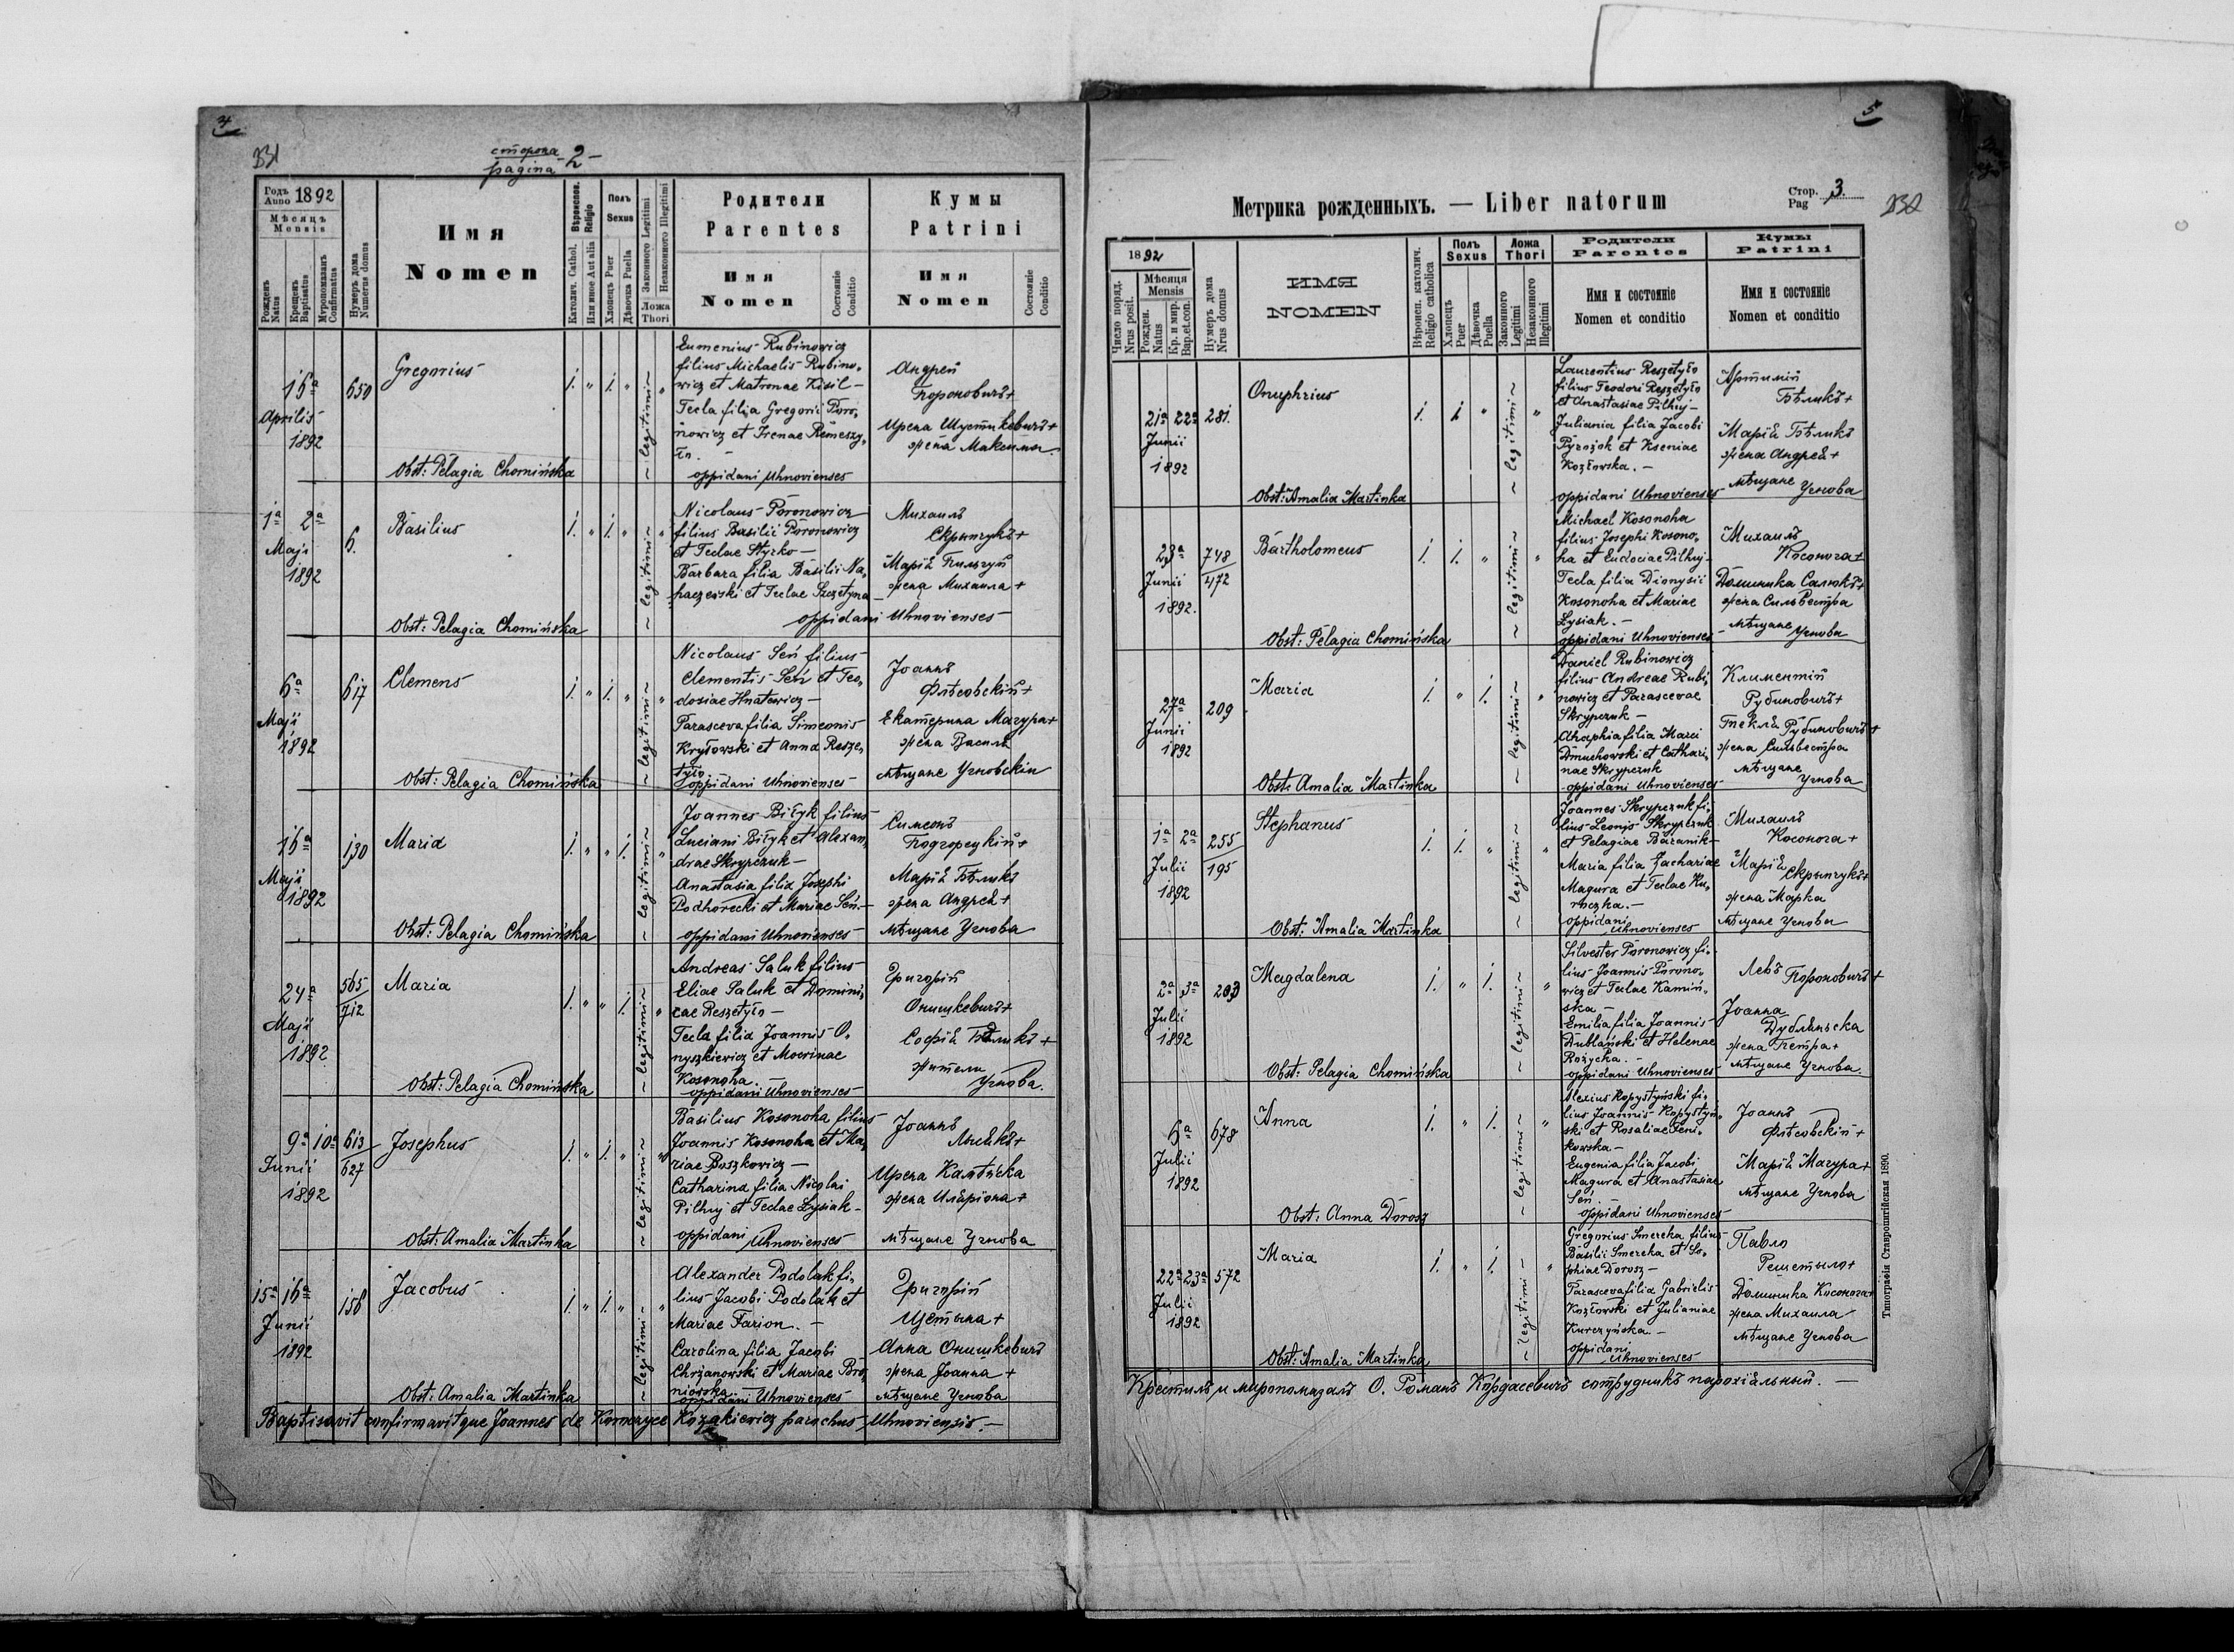 4
231
сторона
pagina 2
Годъ
Anno 1892
Мѣсяцъ
Mensis
Рожденъ
Natus
Крещенъ
Baptisatus
Мѵропомазанъ
Confirmatus
Нумеръ дома
Numerus domus
Имя
Nomen
Вѣроиспов.
Religio
Католич. Cathol.
Или иное Aut alia
Полъ
Sexus
Хлопецъ Puer
Дѣвочка Puella
Законного Legitimi
Незаконного Illegitimi
Ложа
Thori
Родители
Parentes
Имя
Nomen
Состояніе
Conditio
Кумы
Patrini
Имя
Nomen
Состояніе
Conditio
16ª
Aprilis
1892
650
Gregorius
1. " 1. "
legitimi
Eumenius Rubinowicz
filius Michaelis Rubino„
wicz et Matronae Kisil –
Tecla filia Gregorii Poro„
nowicz et Irenae Remeszy„
ło. –
oppidani Uhnovienses
Андрей
Пороновичъ+
Ирена Шустикевичъ+
жена Максима
Obst: Pelagia Chomińska
1ª 2ª
Maji
1892
6.
Basilius
1. " 1. "
legitimi
Nicolaus Poronowicz
filius Basilii Poronowicz
et Teclae Hyrko –
Barbara filia Basilii Na„
haczewski et Teclae Szczetyna –
oppidani Uhnovienses
Михаилъ
Скрыпчукъ+
Марія Пильгуй
жена Михаила +
Obst: Pelagia Chomińska
6ª
Maji
1892
617
Clemens
1. " 1. "
legitimi
Nicolaus Seń filius
Clementis Seń et Teo„
dosiae Hnatewicz –
Parasceva filia Simeonis
Kryłowski et Anna Resze„
tyło
oppidani Uhnovienses
Іоаннъ
Флѣсовскій+
Екатерина Магура+
жена Василя
мѣщане Угновскіи
Obst: Pelagia Chomińska
16ª
Maji
1892
130
Maria
1. " " 1.
legitimi
Joannes Biłyk filius
Luciani Biłyk et Alexan„
drae Skrypczuk –
Anastasia filia Josephi
Podhorecki et Mariae Seń. –
oppidani Uhnovienses
Симеонъ
Подгорецкій+
Марія Бѣликъ
жена Андрея+
мѣщане Угнова
Obst: Pelagia Chomińska
24ª
Maji
1892
565
712
Maria
1. " " 1.
legitimi
Andreas Saluk filius
Eliae Saluk et Domini„
cae Reszetyło –
Tecla filia Joannis O„
nyszkiewicz et Mocrinae
Kosonoha. –
oppidani Uhnovienses
Григорій
Онишкевичъ+
Софія Бѣликъ +
жители
Угнова.
Obst: Pelagia Chomińska
9ª 10ª
Junii
1892
613
627
Josephus
1. " 1. "
legitimi
Basilius Kosonoha filius
Joannis Kosonoha et Ma„
riae Buszkowicz –
Catharina filia Nicolai
Pilhuj et Teclae Łysiak –
oppidani Uhnovienses
Іоаннъ
Лысякъ+
Ирена
жена Иларіона+
мѣщане Угнова
Obst: Amalia Martinka
15ª 16ª
Junii
1892
158
Jacobus
1. " 1. "
legitimi
Alexander Podolak fi„
lius Jacobi Podolak et
Mariae Farion. –
Carolina filia Jacobi
Chrzanowski et Mariae Bro„
niowska
oppidani Uhnovienses
Григорій
Щетына+
Анна Онишкевичъ
жена Іоанна +
мѣщане Угнова
Obst: Amalia Martinka
Baptisavit confirmavitque Joannes de Kozakiewicz parochus Uhnoviensis. –
5
Метрика рожденныхъ. — Liber natorum
Стор.
Pag 3.
232
1892
Число поряд.
Nrus posit.
Мѣсяця
Mensis
Рожден.
Natus
Кр. и мир.
Bap.et.con.
Нумеръ дома
Nrus domus
ИМЯ
NOMEN
Вѣроисп. католич.
Religio catholica
Полъ
Sexus
Хлопецъ
Puer
Дѣвочка
Puella
Ложа
Thori
Законного
Legitimi
Незаконного
Illegitimi
Родители
Parentes
Имя и состояніе
Nomen et conditio
Кумы
Patrini
Имя и состояніе
Nomen et conditio
21ª 22ª
Junii
1892
281.
Onuphrius
1. 1. "
legitimi
Laurentius Reszetyło
filius Teodori Reszetyło
et Anastasiae Pilhuj –
Juliania filia Jacobi
Pyrożok et Kseniae
Kozłowska. –
oppidani Uhnovienses
Артимій
Бѣликъ+
Марія Бѣликъ
жена Андрея+
мѣщане Угнова
Obst: Amalia Martinka
23ª
Junii
1892.
748
472
Bartholomeus
1. 1. "
legitimi
Michael Kosonoha
filius Josephi Kosono„
ha et Eudociae Pilhuj –
Tecla filia Dionysii
Kosonoha et Mariae
Łysiak. –
oppidani Uhnovienses –
Михаилъ
Косонога+
Доминика Салюкъ+
жена Сильвестра
мѣщане Угнова
Obst: Pelagia Chomińska
27ª
Junii
1892
209
Maria
1. " 1.
legitimi
Daniel Rubinowicz
filius Andreae Rubi„
nowicz et Parascevae
Skrypczuk –
Ahaphia filia Marci
Dmuchowski et Cathari„
nae Skrypczuk
oppidani Uhnovienses
Климентій
Рубиновичъ+
Текля Рубиновичъ+
жена Сильвестра
мѣщане Угнова
Obst: Amalia Martinka
1ª 2ª
Julii
1892
255
195
Stephanus
1. 1. "
legitimi
Joannes Skrypczuk fi„
lius Leonis Skrypczuk
et Pelagiae Baranik –
Maria filia Zachariae
Magura et Teclae Ku„
roczka. –
oppidani Uhnovienses
Михаилъ
Косонога +
Марія Скрыпчукъ+
жена Марка
мѣщане Угнова
Obst: Amalia Martinka
2ª 3ª
Julii
1892
203
Magdalena
1. " 1.
legitimi
Silvester Poronowicz fi„
lius Joannis Porono„
wicz et Teclae Kamiń„
ska
Emilia filia Joannis
Dublański et Helenae
Rożycka. –
oppidani Uhnovienses
Левъ Пороновичъ+
Іоанна
Дублянська
жена Петра+
мѣщане Угнова.
Obst: Pelagia Chomińska
6ª
Julii
1892
678
Anna
1. " 1.
legitimi
Alexius Kopystyński fi„
lius Joannis Kopystyń„
ski et Rosaliae Feni„
kowska –
Eugenia filia Jacobi
Magura et Anastasiae
Seń. –
oppidani Uhnovienses
Іоаннъ
Флѣсовскій+
Марія Магура+
мѣщане Угнова
Obst: Anna Dorosz
22ª 23ª
Julii
1892
572
Maria
1. " 1.
legitimi
Gregorius Smereka filius
Basilii Smereka et So„
phiae Dorosz –
Parasceva filia Gabrielis
Kozłowski et Julianiae
Kurczyńska –
oppidani
Uhnovienses
Павло
Решетыло+
Доминика Косонога+
жена Михаила
мѣщане Угнова
Obst: Amalia Martinka
Крестилъ и миропомазалъ О. Романъ Кордасевичъ сотрудникъ парохіальный. –
Типографія Ставропигійская 1890.